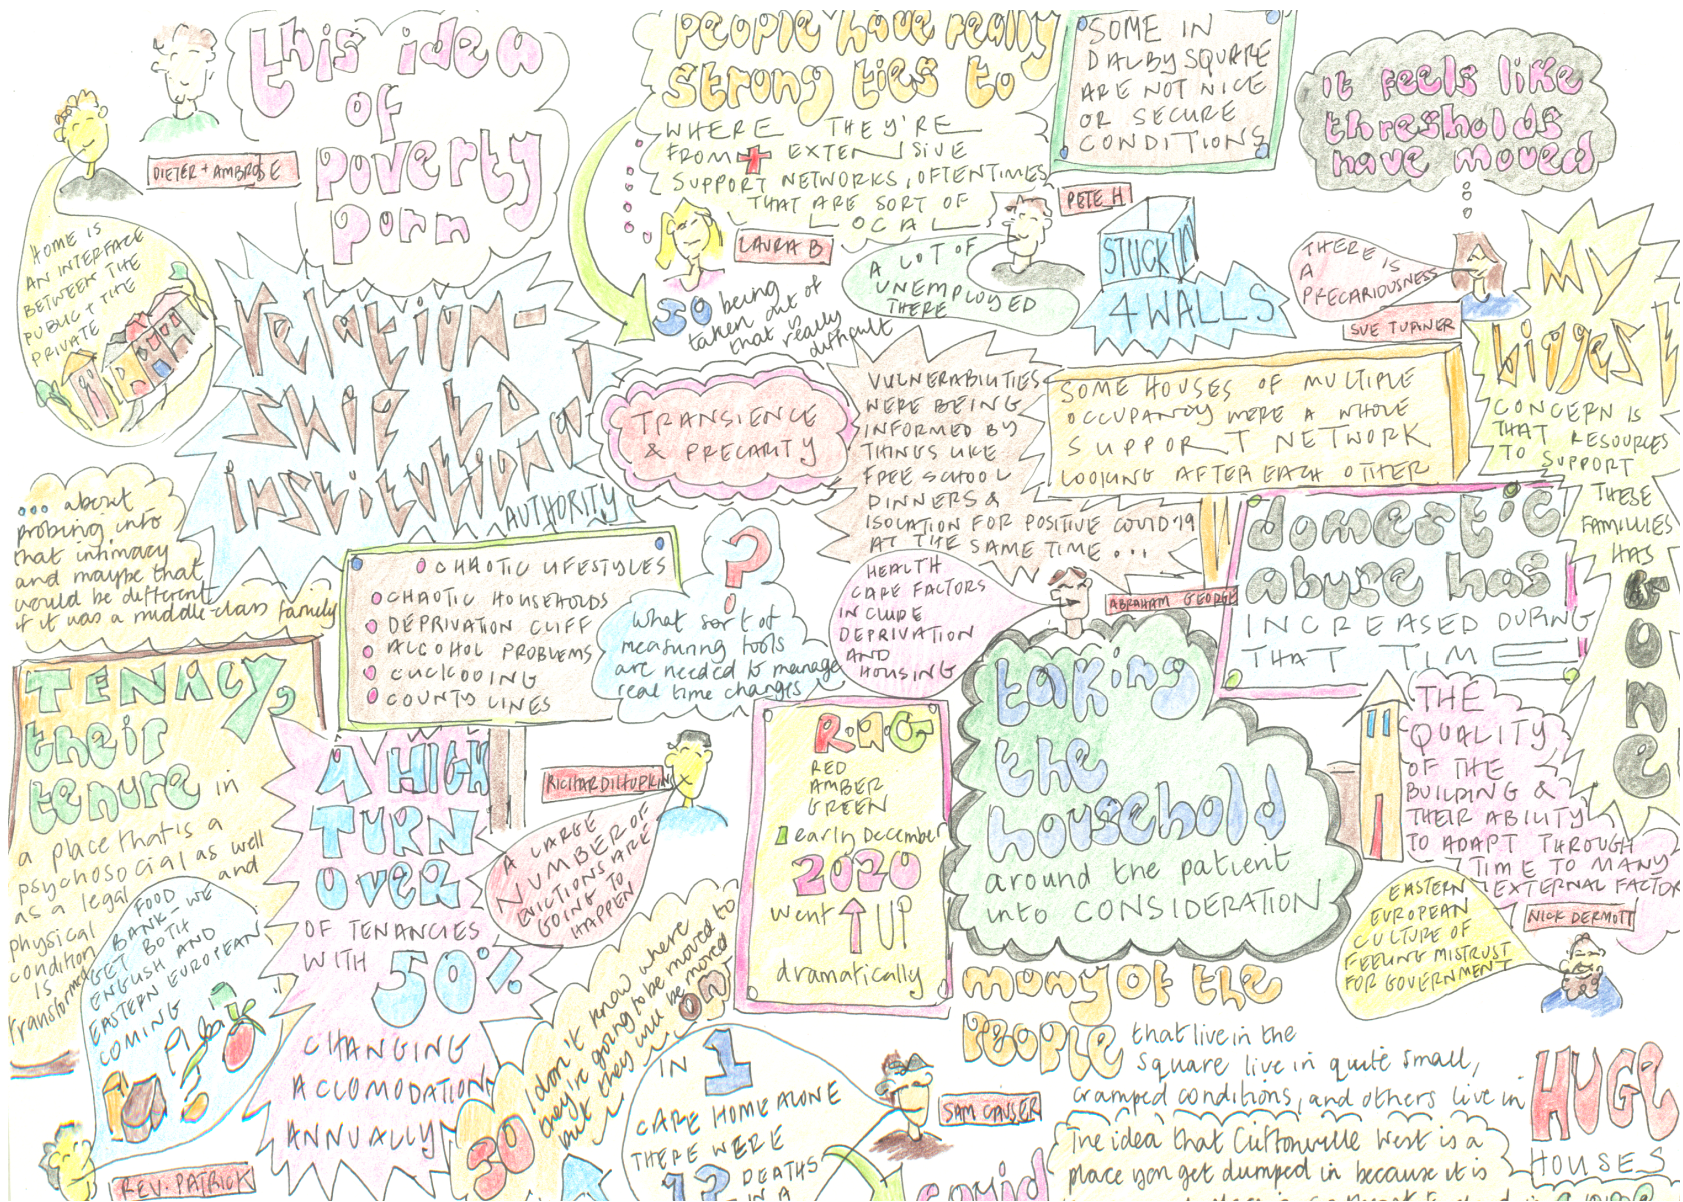 this idea
of
poverty
porn
DIETER + AMBROSE
HOME IS
AN INTERFACE
BETWEEN THE
PUBLIC + THE
PRIVATE
people have really
strong ties to
WHERE THEY'RE
FROM + EXTENSIVE
SUPPORT NETWORKS, OFTENTIMES
THAT ARE SORT OF
LOCAL
LAURA B
SO being
taken out of
that is really
difficult
SOME IN
DALBY SQUARE
ARE NOT NICE
OR SECURE
CONDITIONS
PETE H
A LOT OF
UNEMPLOYED
THERE
STUCK IN
4 WALLS
it feels like
thresholds
have moved
THERE IS
A
PRECARIOUSNESS
SUE TURNER
MY
biggest
CONCERN IS
THAT RESOURCES
TO SUPPORT
THESE
FAMILIES
HAS
GONE
relation-
ship to
institutional
AUTHORITY
TRANSIENCE
& PRECARITY
VULNERABILITIES
WERE BEING
INFORMED BY
THINGS LIKE
FREE SCHOOL
DINNERS &
ISOLATION FOR POSITIVE COVID 19
AT THE SAME TIME ...
SOME HOUSES OF MULTIPLE
OCCUPANCY WERE A WHOLE
SUPPORT NETWORK
LOOKING AFTER EACH OTHER
... about
probing into
that intimacy
and maybe that
would be different
if it was a middle-class family
CHAOTIC LIFESTYLES
CHAOTIC HOUSEHOLDS
DEPRIVATION CLIFF
ALCOHOL PROBLEMS
CUCKOOING
COUNTY LINES
?
What sort of
measuring tools
are needed to manage
real time changes
HEALTH
CARE FACTORS
INCLUDE
DEPRIVATION
AND
HOUSING
ABRAHAM GEORGE
domestic
abuse has
INCREASED DURING
THAT TIME
TENACY,
their
tenure in
a place that is a
psychosocial as well
as a legal and
physical
condition
IS
transformed
A HIGH
TURN
OVER
OF TENANCIES
WITH
50%
CHANGING
ACCOMODATION
ANNUALLY
RICHARD HOPKINS
A LARGE
NUMBER OF
EVICTIONS ARE
GOING TO
HAPPEN
R.A.G
RED
AMBER
GREEN
1 early December
2020
went ↑ UP
dramatically
taking
the
household
around the patient
into CONSIDERATION
THE
QUALITY
OF THE
BUILDING &
THEIR ABILITY
TO ADAPT THROUGH
TIME TO MANY
EXTERNAL FACTOR
NICK DERMOTT
EASTERN
EUROPEAN
CULTURE OF
FEELING MISTRUST
FOR GOVERNMENT
FOOD
BANK – WE
GET BOTH
ENGLISH AND
EASTERN EUROPEAN
COMING
REV. PATRICK
I don't know where
they're going to be moved to
but they will be moved
ON
30
IN 1
CARE HOME ALONE
THERE WERE
12 DEATHS
IN A
SAM CAUSER
covid
many of the
people that live in the
square live in quite small,
cramped conditions, and others live in
HUGE
HOUSES
The idea that Cliftonville West is a
place you get dumped in because it is